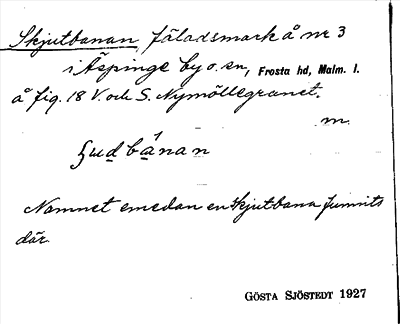 Skjutbanan, fäladsmark å nr 3
i Äspinge by o. sn, Frosta hd, Malm. l.
å fig. 18 V. och S. Nymöllegranet.
m.
ʃudbánan
Namnet emedan en skjutbana funnits
där.
GÖSTA SJÖSTEDT 1927